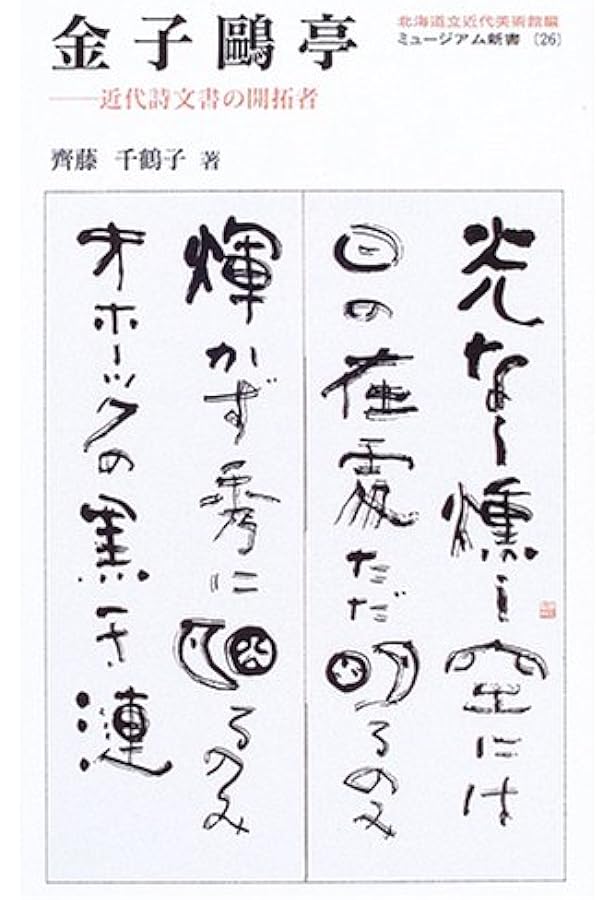 金子鷗亭
北海道立近代美術館編
ミュージアム新書〔26〕
——近代詩文書の開拓者
齊藤 千鶴子 著
光なし燻し空には
日の在處ただ明るのみ
輝かず秀に明るのみ
オホーツクの黒き漣